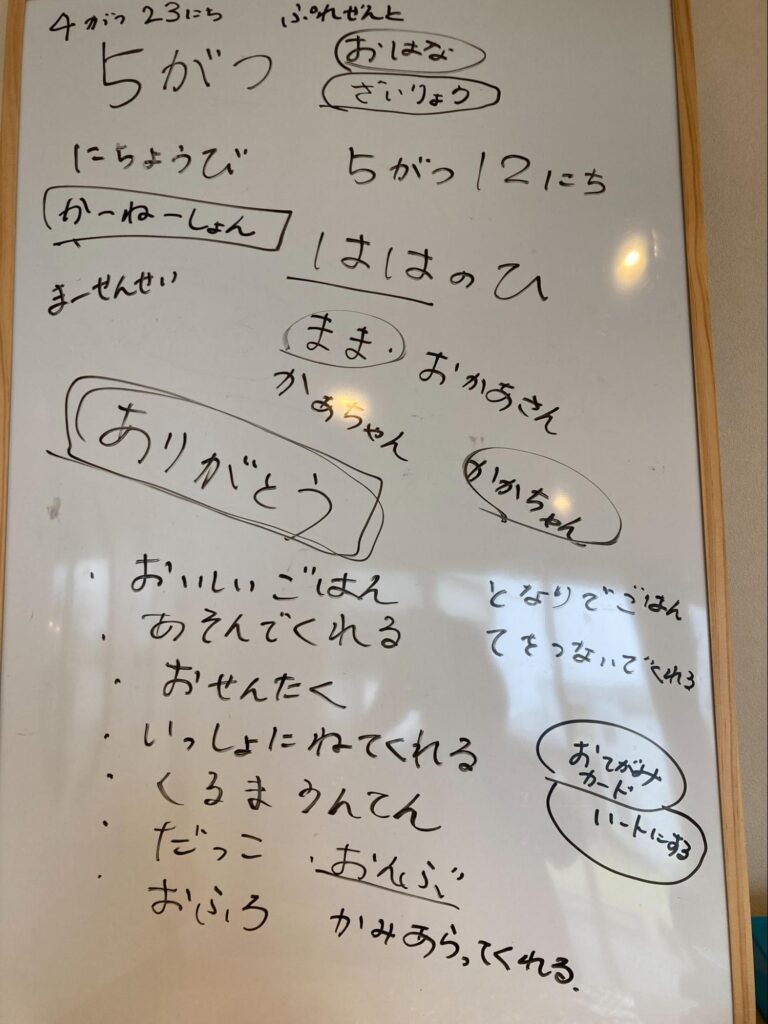 4がつ23にち ぷれぜんと
5がつ
おはな
ざいりょう
にちょうび
5がつ12にち
かーねーしょん
ははのひ
まーせんせい
まま・おかあさん
かあちゃん
かかちゃん
ありがとう
・おいしいごはん
となりでごはん
・あそんでくれる
てをつないでくれる
・おせんたく
・いっしょにねてくれる
・くるまうんてん
おてがみ
カード
はーとにする
・だっこ・おんぶ
・おふろ かみあらってくれる.